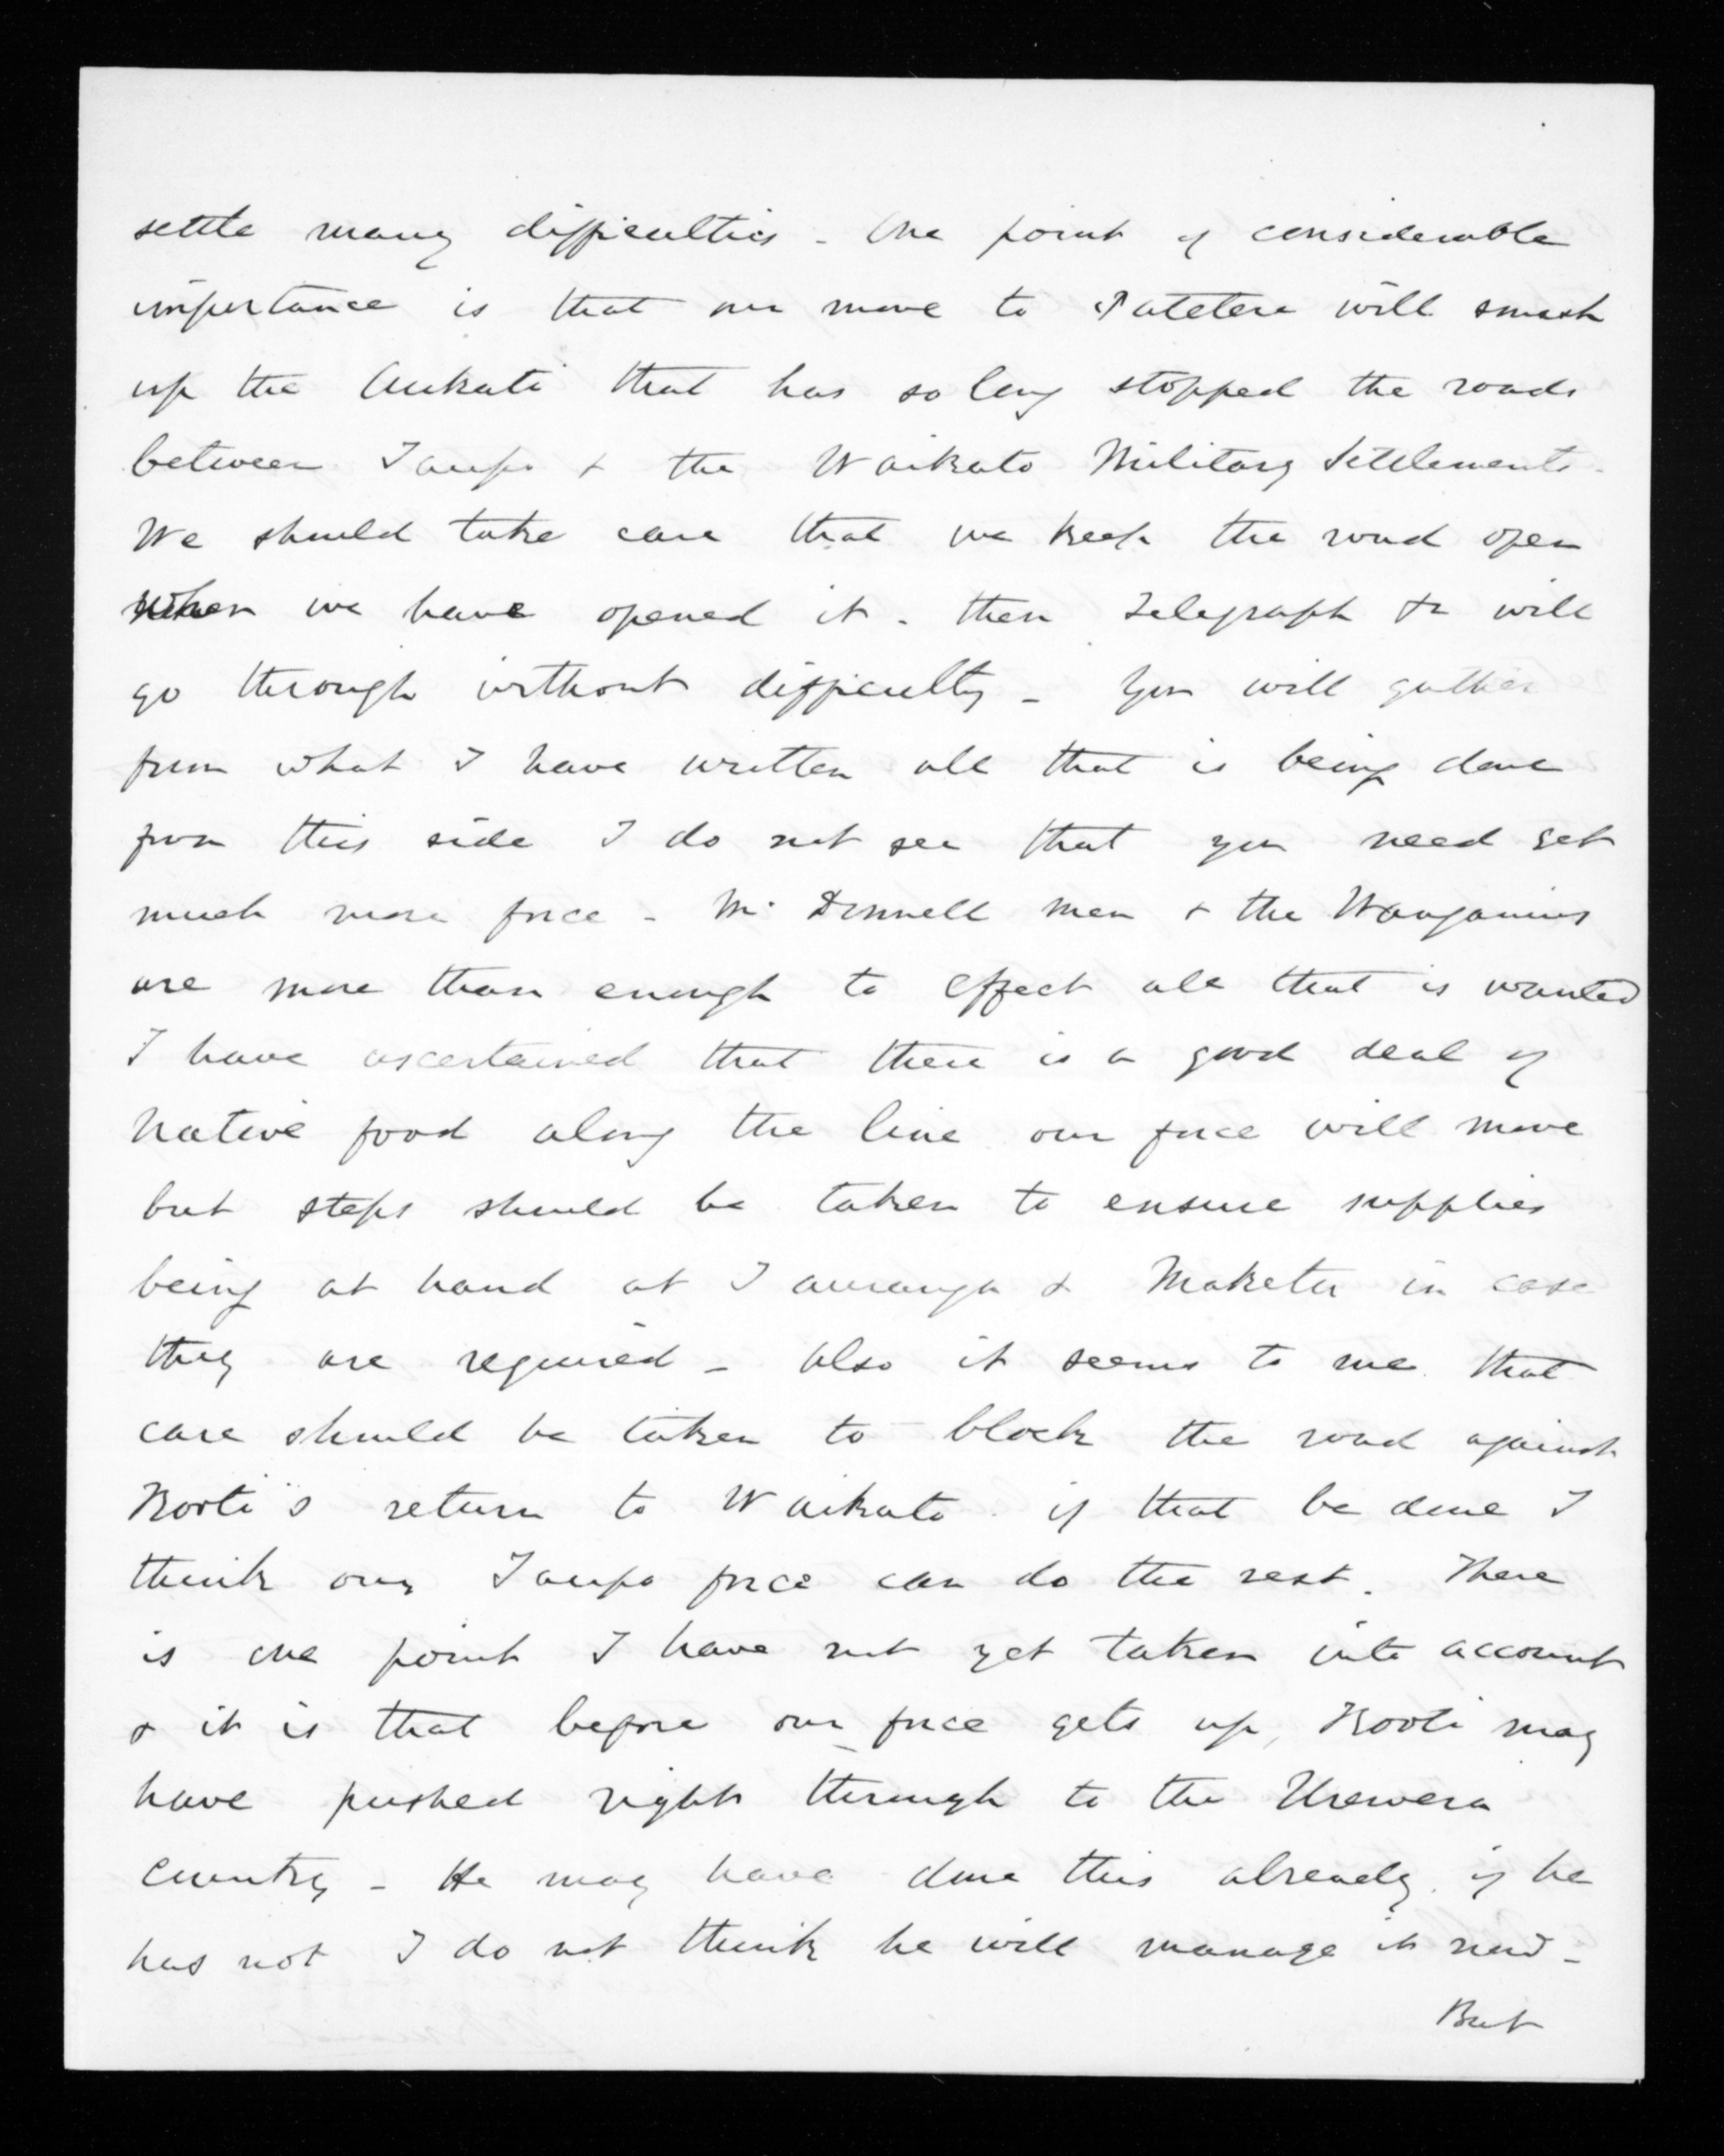 settle many difficulties - One point of considerable
importance is that our move to Patetere will smash
up the Aukati that has so long stopped the roads
between Taupo & the Waikato Military Settlements -
We should take care that we keep the road open
when we have opened it - then Telegraph &c will
go through without difficulty - You will gather
from what I have written all that is being done
from this side I do not see that you need get
much more force - McDonnell men & the Wanganuis
are more than enough to effect all that is wanted
I have ascertained that there is a good deal of
native food along the line our force will move
but steps should be taken to ensure supplies
being at hand at Tauranga & Maketu in case
they are required - Also it seems to me that
care should be taken to block the road against
Kooti's return to Waikato. if that be done I
think our Taupo force can do the rest. There
is one point I have not yet taken into account
& it is that before our force gets up, Kooti may
have pushed right through to the Urewera
Country - He may have done this already. if he
has not I do not think he will manage it now -
But